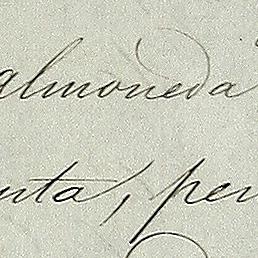 almoneda
nta, per